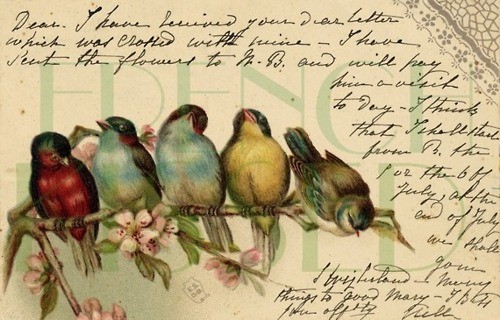 Dear. I have received your dear letter
which was crossed with mine – I have
sent the flowers to M. B. and will pay
him a visit
to day – I think
that I shall start
from B. the
5 or the 6 of
July, at the
end of July
we shall
Switzerland – Many
things to good Mary – I B
FRENCH